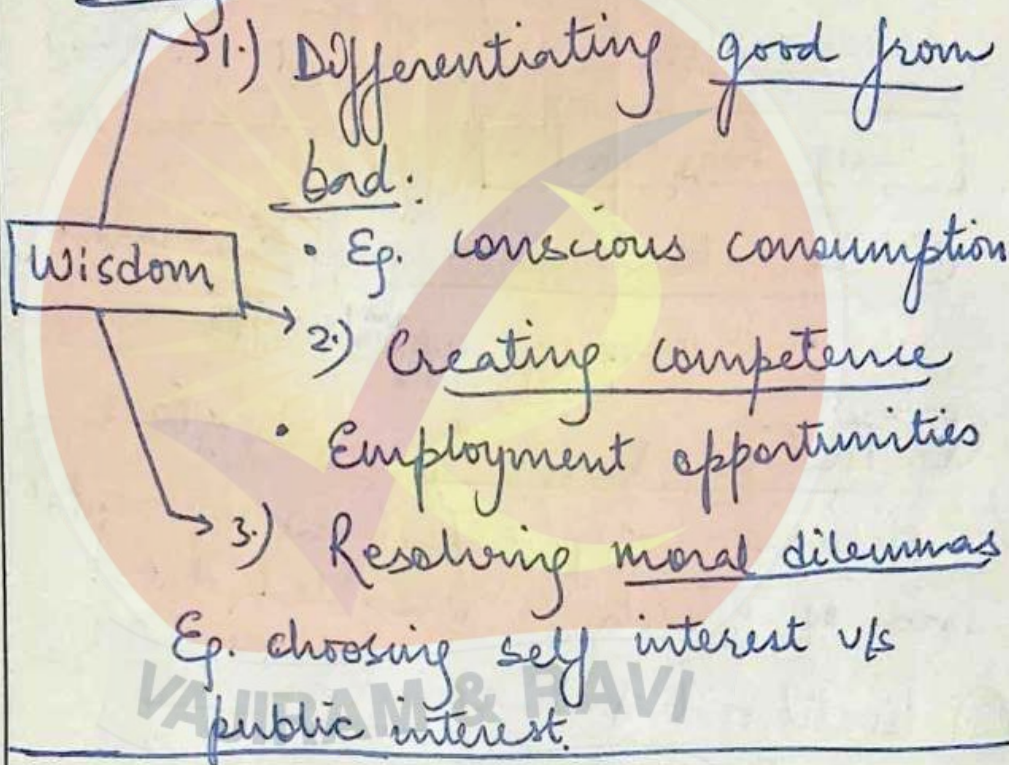 1.) Differentiating good from
bad:
• Eg. conscious consumption
Wisdom
2.) Creating competence
• Employment opportunities
3.) Resolving moral dilemmas
Eg. choosing self interest v/s
public interest.
VAJIRAM & RAVI